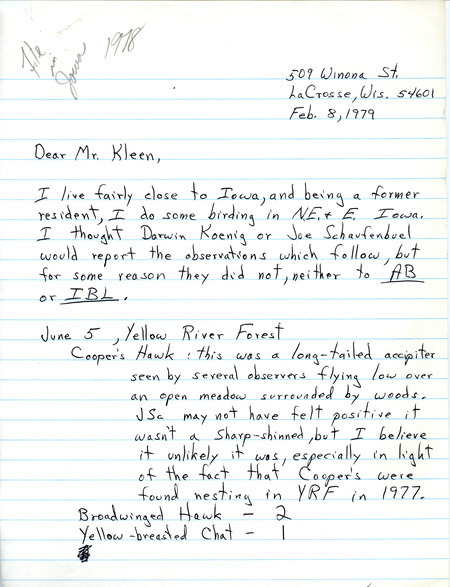 File
in
Iowa 1978
509 Winona St.
LaCrosse, Wis. 54601
Feb. 8, 1979
Dear Mr. Kleen,
I live fairly close to Iowa, and being a former
resident, I do some birding in NE. & E. Iowa.
I thought Darwin Koenig or Joe Schaufenbuel
would report the observations which follow, but
for some reason they did not, neither to AB
or IBL.
June 5, Yellow River Forest
Cooper's Hawk: this was a long-tailed accipiter
seen by several observers flying low over
an open meadow surrounded by woods.
JSc may not have felt positive it
wasn't a sharp-shinned, but I believe
it unlikely it was, especially in light
of the fact that Cooper's were
found nesting in YRF in 1977.
Broadwinged Hawk - 2
Yellow-breasted Chat - 1